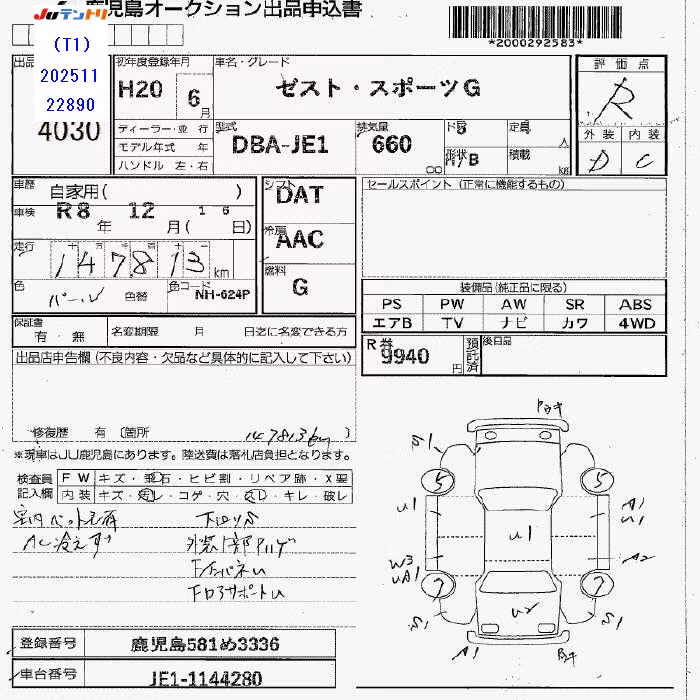 JUテントリ 鹿児島オークション出品申込書
*2000292583*
(T1)
202511
22890
出品
4030
初年度登録年月
H20 6月
車名・グレード
ゼスト・スポーツG
評価点
R
外装 内装
D C
ディーラー・並行
モデル年式 年
ハンドル 左・右
型式
DBA-JE1
排気量
660 cc
ドア
5
形状
H/B
定員 人
積載 kg
車歴 自家用( )
車検 R8年 12月( 16日)
走行
147813 km
色 パール 色替
色コード NH-624P
シフト
DAT
冷房
AAC
燃料
G
セールスポイント (正常に機能するもの)
装備品(純正品に限る)
PS PW AW SR ABS
エアB TV ナビ カワ 4WD
保証書
有・無
名変期限 月 日迄に名変できる方
R券
9940 円
預託済
後日品
出品店申告欄(不良内容・欠品など具体的に記入して下さい)
修復歴 有 〔箇所 147813km 〕
※現車はJU鹿児島にあります。陸送費は落札店負担となります。
検査員記入欄
FW キズ・飛石・ヒビ割・リペア跡・X要
内装 キズ・汚レ・コゲ・穴・スレ・キレ・破レ
AC冷えず
下回りS
FインパネU
S1
5
5
U1
A1
U1
U1
W3
UA1
A2
7
7
U2
S1
S1
A1
登録番号 鹿児島581め3336
車台番号 JE1-1144280